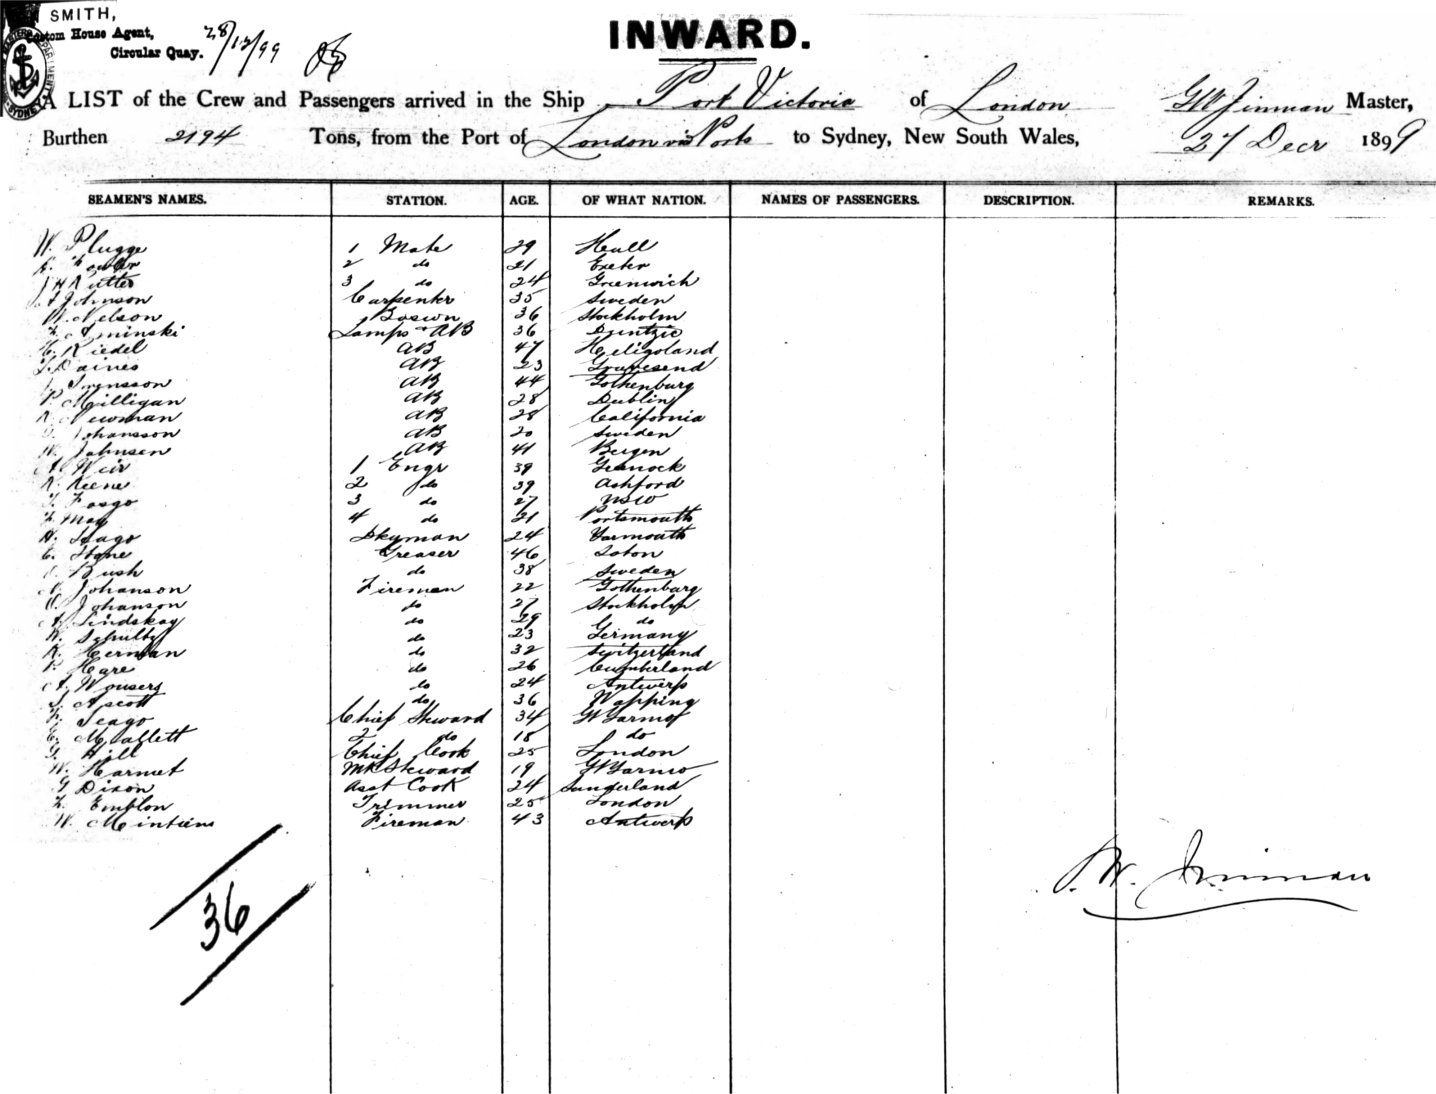 SMITH,
Custom House Agent,
Circular Quay. 28/12/99
INWARD.
A LIST of the Crew and Passengers arrived in the Ship Port Victoria of London G W Jinman Master,
Burthen 2194 Tons, from the Port of London via Ports to Sydney, New South Wales, 27 Decr 1899
SEAMEN'S NAMES. STATION. AGE. OF WHAT NATION. NAMES OF PASSENGERS. DESCRIPTION. REMARKS.
W. Plugge 1 Mate 29 Hull
Fowler 2 do 21 Exeter
J H Rutter 3 do 24 Greenwich
Johnson Carpenter 35 Sweden
Nelson Boswn 36 Stockholm
Aminski Lamps & AB 36 Dantzic
Riedel AB 47 Heligoland
Daines AB 23 Gravesend
Swensson AB 44 Gothenburg
P. Milligan AB 28 Dublin
Newman AB 28 California
Johansson AB 20 Sweden
W. Johnsen AB 41 Bergen
A. Weir 1 Engr 39 Greenock
Keene 2 do 39 Ashford
Fasgo 3 do 27 NSW
May 4 do 21 Portsmouth
H. Seago Dkyman 24 Yarmouth
Stone Greaser 46 Soton
Bush do 38 Sweden
Johanson Fireman 22 Gothenburg
Johanson do 27 Stockholm
A. Lindskog do 29 do
W. Schultz do 23 Germany
Herman do 32 Switzerland
P. Hare do 26 Cumberland
A. Wousers do 24 Antwerp
Ascott do 36 Wapping
Seago Chief Steward 34 Gt Yarmo
Mallett 2 do 18 do
G. Hill Chief Cook 25 London
W. Harmet MR Steward 19 Gt Yarmo
G Dixon Asst Cook 24 Sunderland
Emblon Trimmer 25 London
W. Meintiens Fireman 43 Antwerp
G. W. Jinman
36